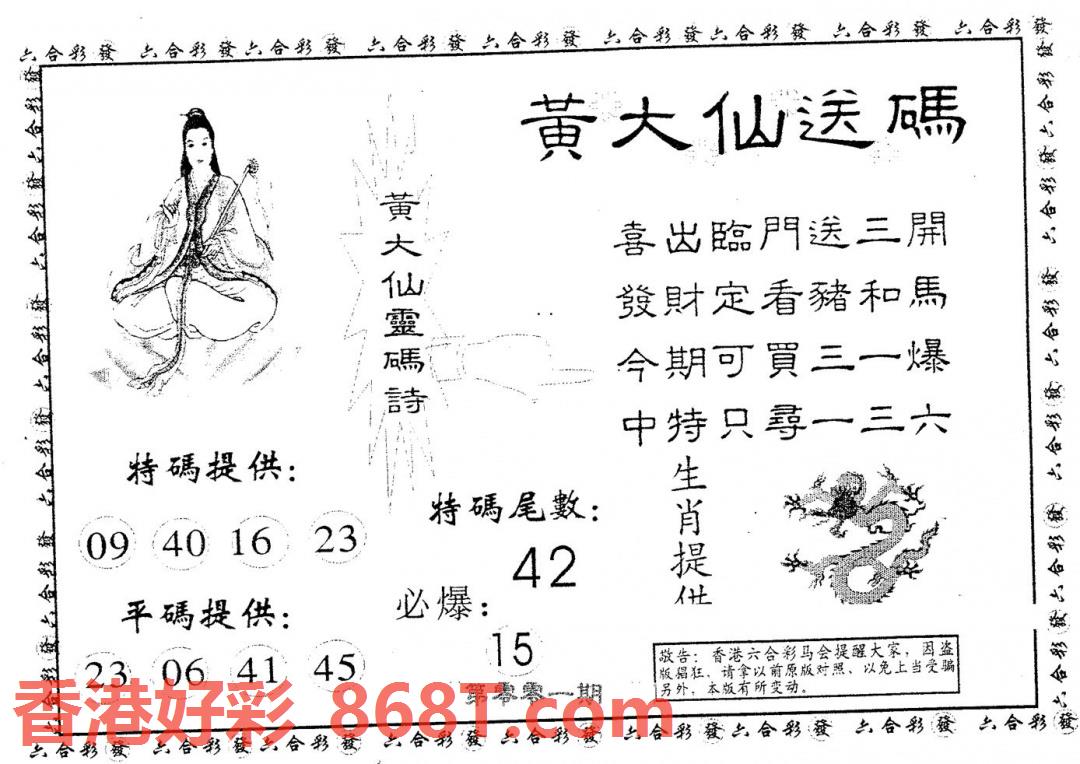 六合彩發 六合彩發 六合彩發 六合彩發 六合彩發 六合彩發 六合彩發 六合彩發 六合彩發
黃大仙送碼
黃大仙靈碼詩
喜出臨門送三開
發財定看豬和馬
今期可買三一爆
中特只尋一三六
特碼提供:
09 40 16 23
平碼提供:
23 06 41 45
特碼尾數:
42
必爆:
15
第零零一期
生肖提供
敬告：香港六合彩马会提醒大家，因盗
版猖狂，请拿以前原版对照，以免上当受骗
另外，本版有所变动。
香港好彩 868T.com
六合彩發 六合彩發 六合彩發 六合彩發 六合彩發 六合彩發 六合彩發 六合彩發 六合彩發